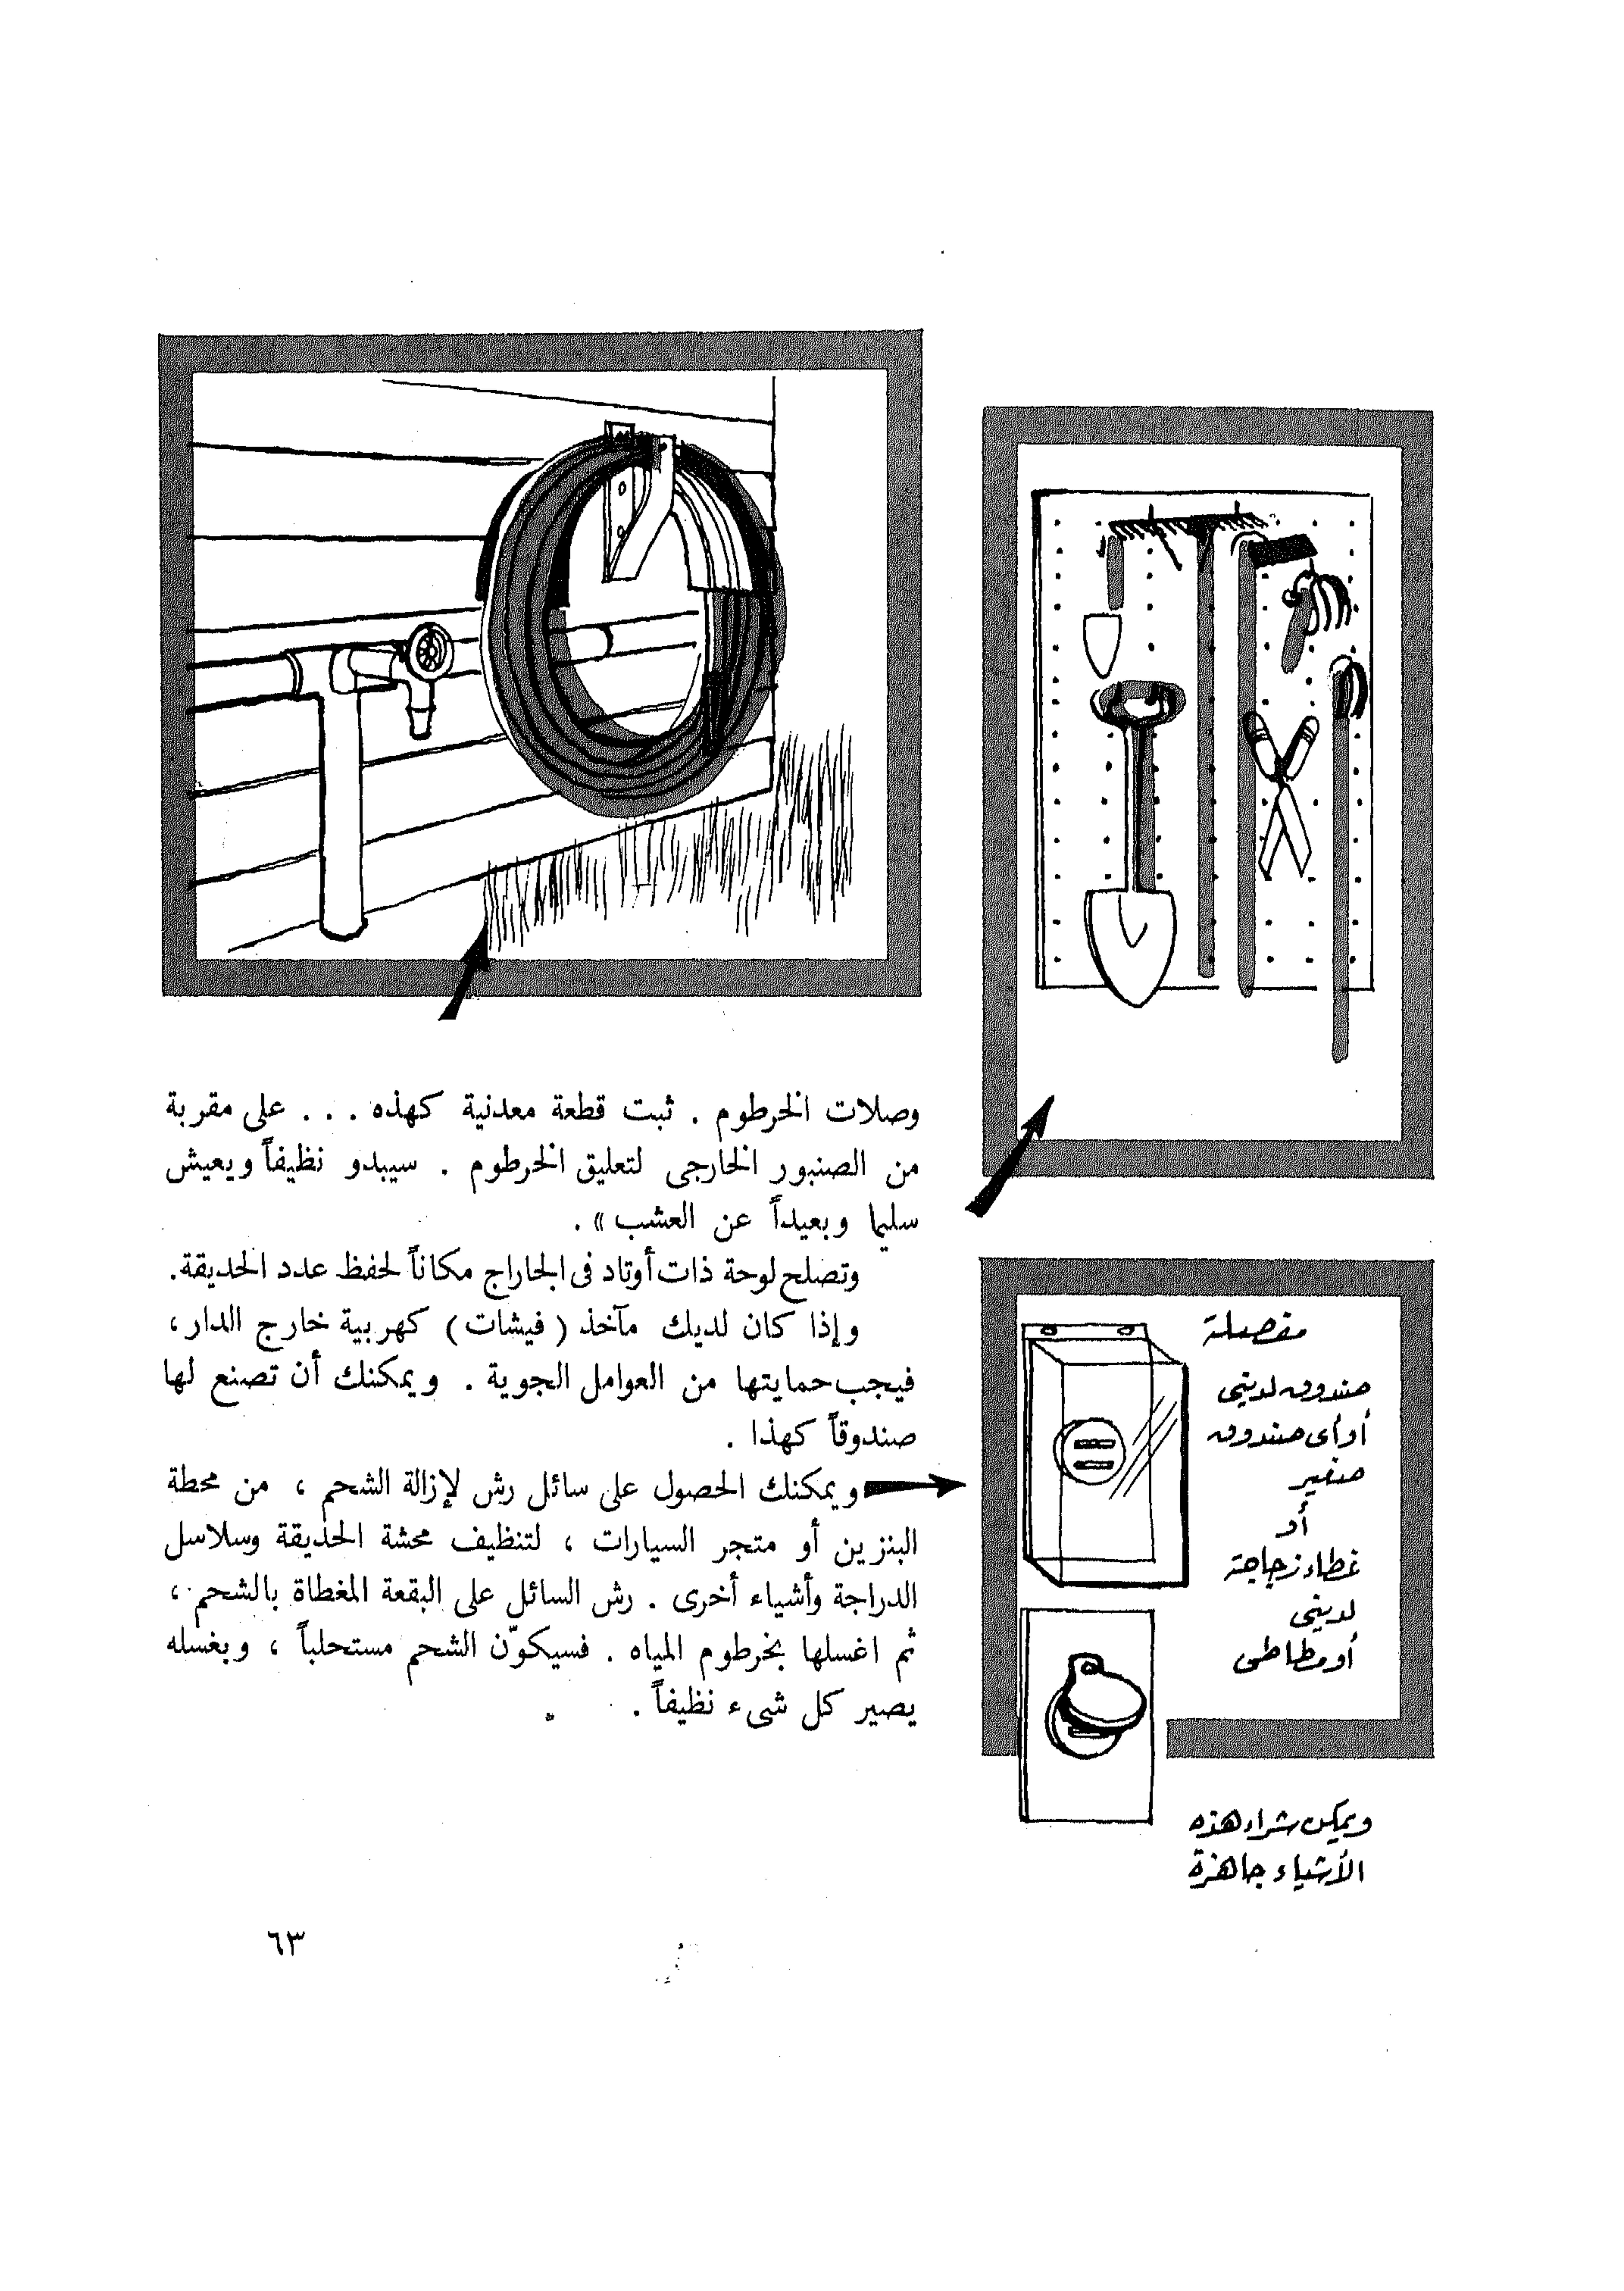 وصلات الخرطوم . ثبت قطعة معدنية كهذه . . . على مقربة
من الصنبور الخارجى لتعليق الخرطوم . سيبدو نظيفاً ويعيش
سليما وبعيداً عن العشب » .
وتصلح لوحة ذات أوتاد فى الجاراج مكاناً لحفظ عدد الحديقة.
وإذا كان لديك مآخذ ( فيشات ) كهربية خارج الدار ،
فيجب حمايتها من العوامل الجوية . ويمكنك أن تصنع لها
صندوقاً كهذا .
ويمكنك الحصول على سائل رش لإزالة الشحم ، من محطة
البنزين أو متجر السيارات ، لتنظيف محشة الحديقة وسلاسل
الدراجة وأشياء أخرى . رش السائل على البقعة المغطاة بالشحم ،
ثم اغسلها بخرطوم المياه . فسيكوّن الشحم مستحلباً ، وبغسله
يصير كل شىء نظيفاً .
مفصلة
صندوق لدينى
أو أى صندوق
صغير
أو
غطاء زجاجة
لدينى
أو مطاطى
ويمكن شراء هذه
الأشياء جاهزة
٦٣